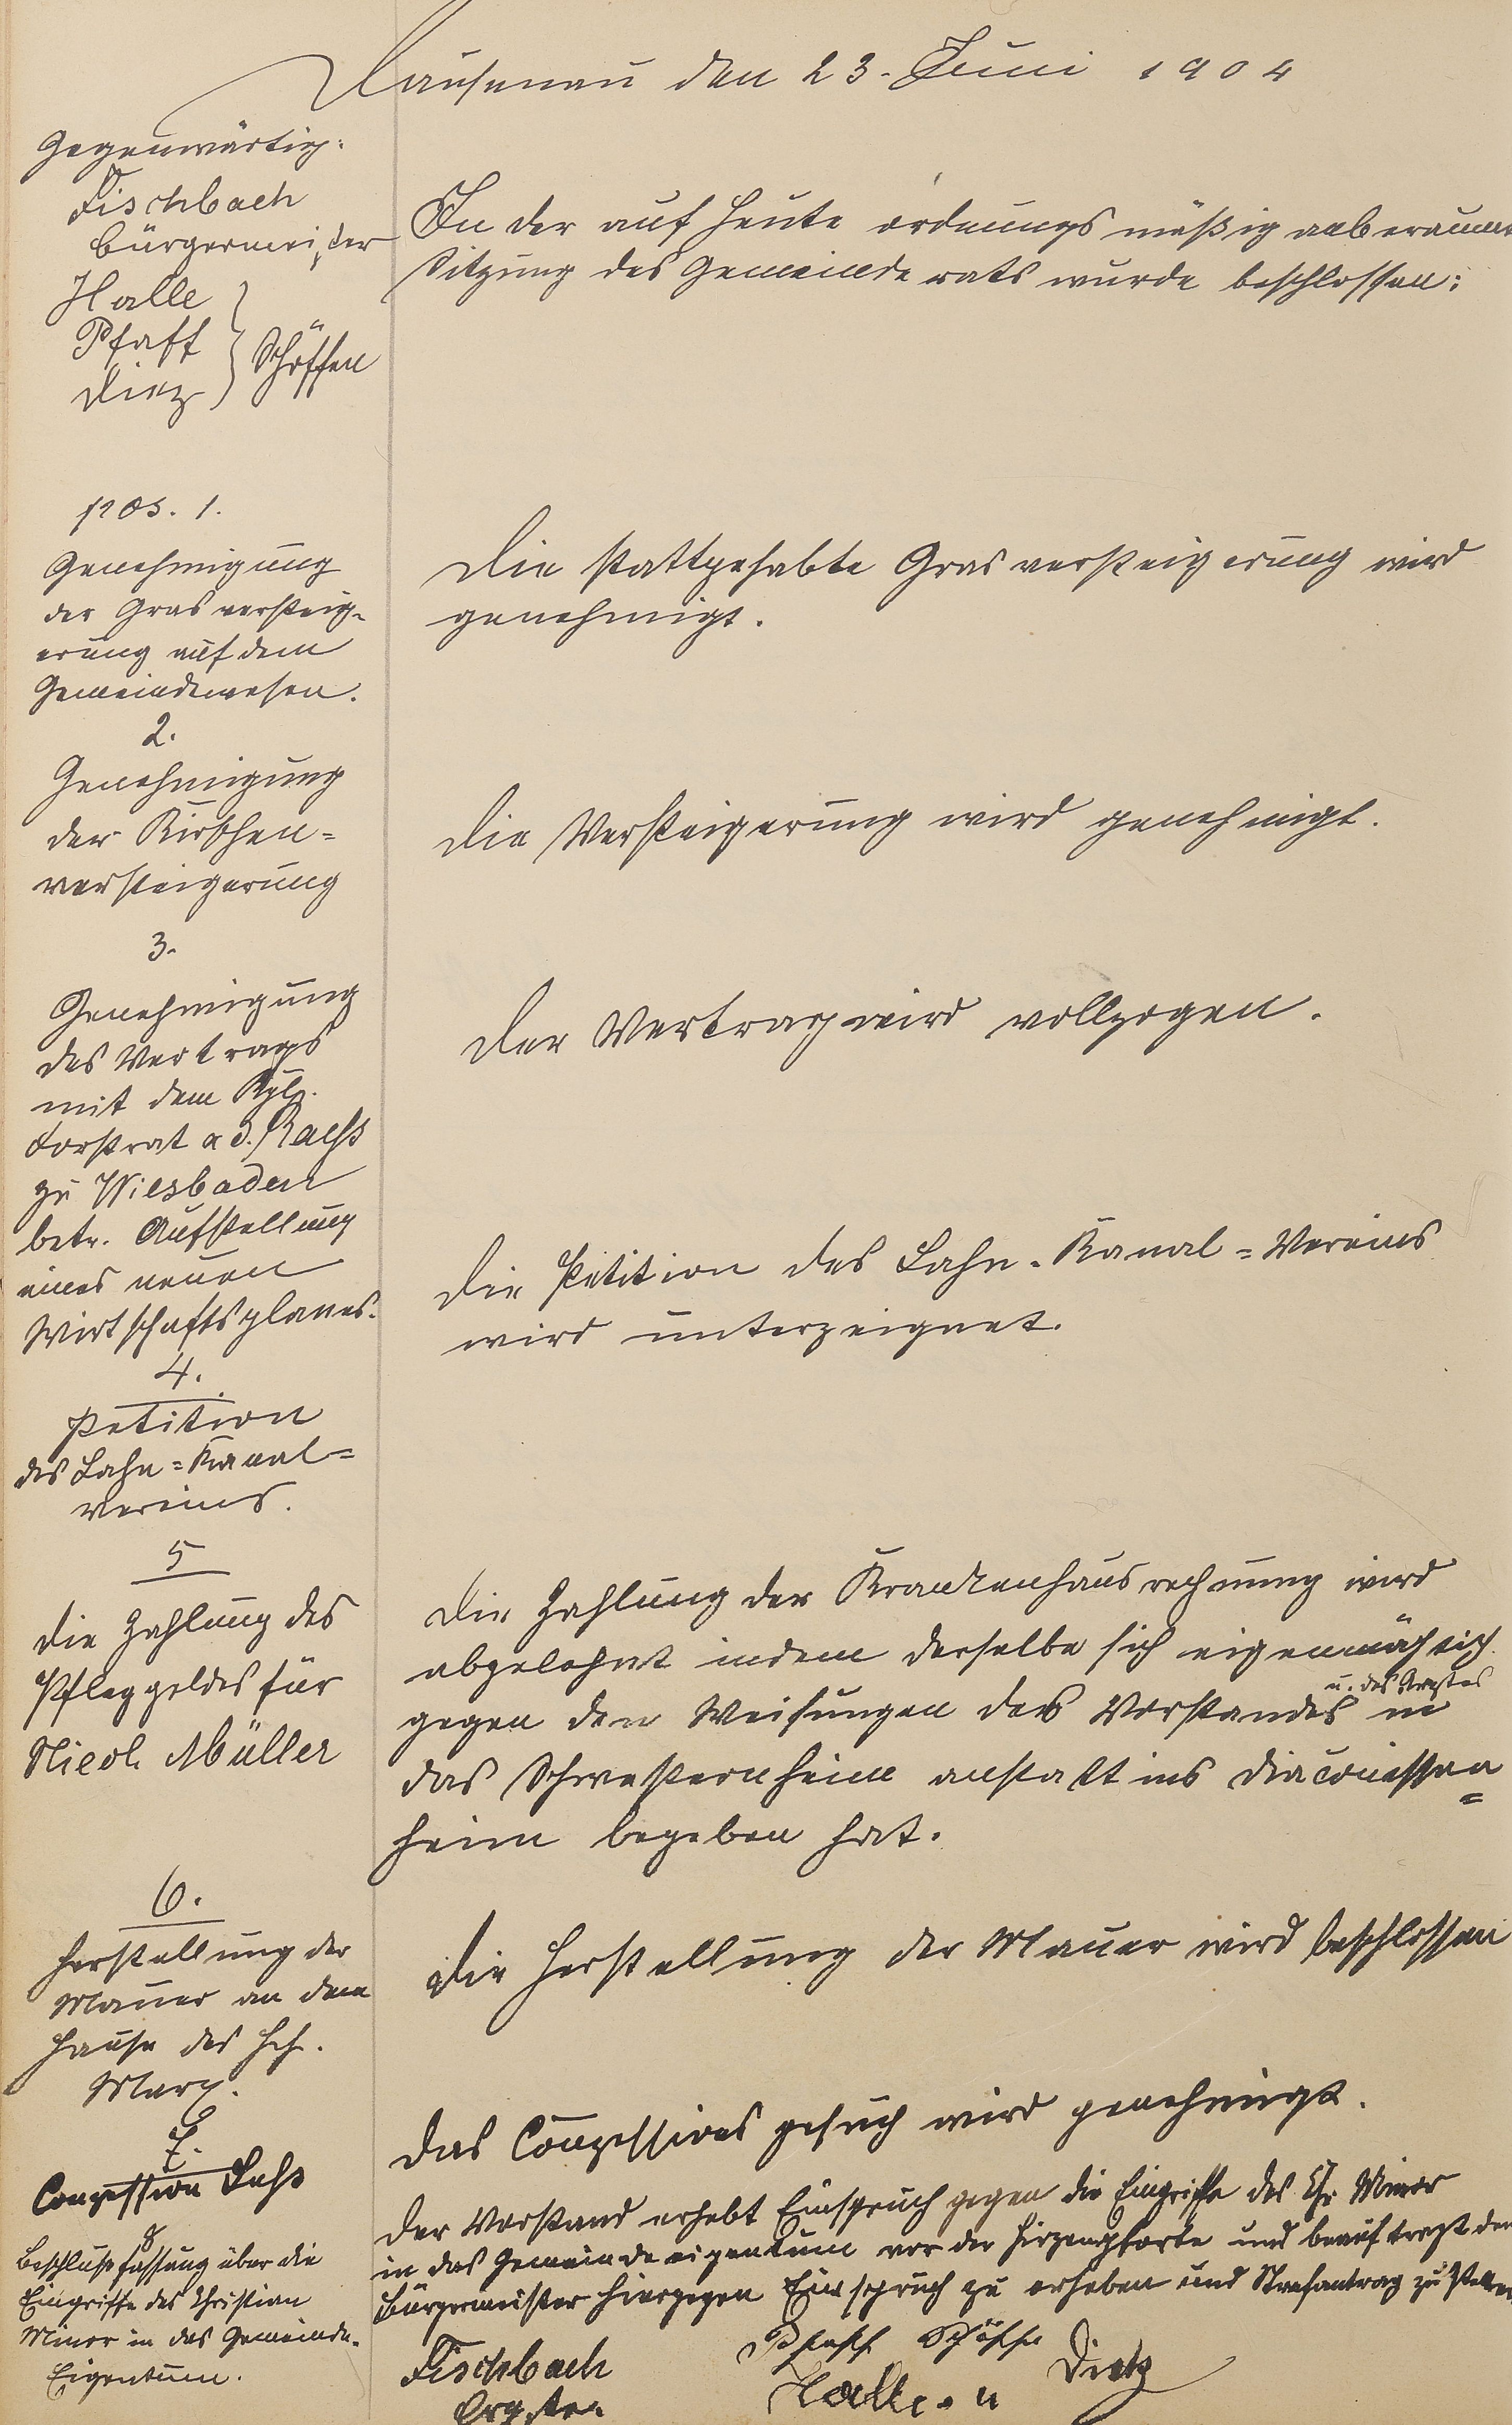 Dausenau den 23. Juni 1904
Gegenwärtig:
Fischbach
Bürgermeister
Halle
Pfaff
Dietz
Schöffen
In der auf heute ordnungsmäßig anberaumt
Sitzung des Gemeinderats wurde beschlossen:
pos. 1.
Genehmigung
der Grasversteig-
erung auf dem
Gemeindewesen.
Die stattgehabte Grasversteigerung wird
genehmigt.
2.
Genehmigung
der Kirschen=
versteigerung
Die Versteigerung wird genehmigt.
3.
Genehmigung
des Vertrags
mit dem Kgl.
Forstrat a. D.
zu Wiesbaden
betr. Aufstellung
eines neuen
Wirtschaftsplanes.
Der Vertrag wird vollzogen.
4.
Petition
des Lahn=Kanal=
Vereins.
Die Petition des Lahn-Kanal=Vereins
wird unterzeignet.
5
Die Zahlung des
Pfleggeldes für
Nicol. Müller
Die Zahlung der Krankenhausrechnung wird
abgelehnt indem derselbe sich eigenmächtig
gegen den Weisungen des Vorstandes u. des Arztes in
das Schwesternheim anstatt ins Diaconissen=
heim begeben hat.
6.
Herstellung der
Mauer an dem
Hause des Hch.
Marx.
Die Herstellung der Mauer wird beschlossen
7.
Conzession
Das Conzessionsgesuch wird genehmigt.
8
Beschlußfassung über die
Eingriffe des Christian
Minor in das Gemeinde-
Eigentum.
Der Vorstand erhebt Einspruch gegen die Eingriffe des Chr. Minor
in das Gemeindeeigentum vor der und beauftragt den
Bürgermeister hiergegen Einspruch zu erheben und Strafantrag zu stellen
Fischbach
Pfaff Schöffe
Halle Dietz